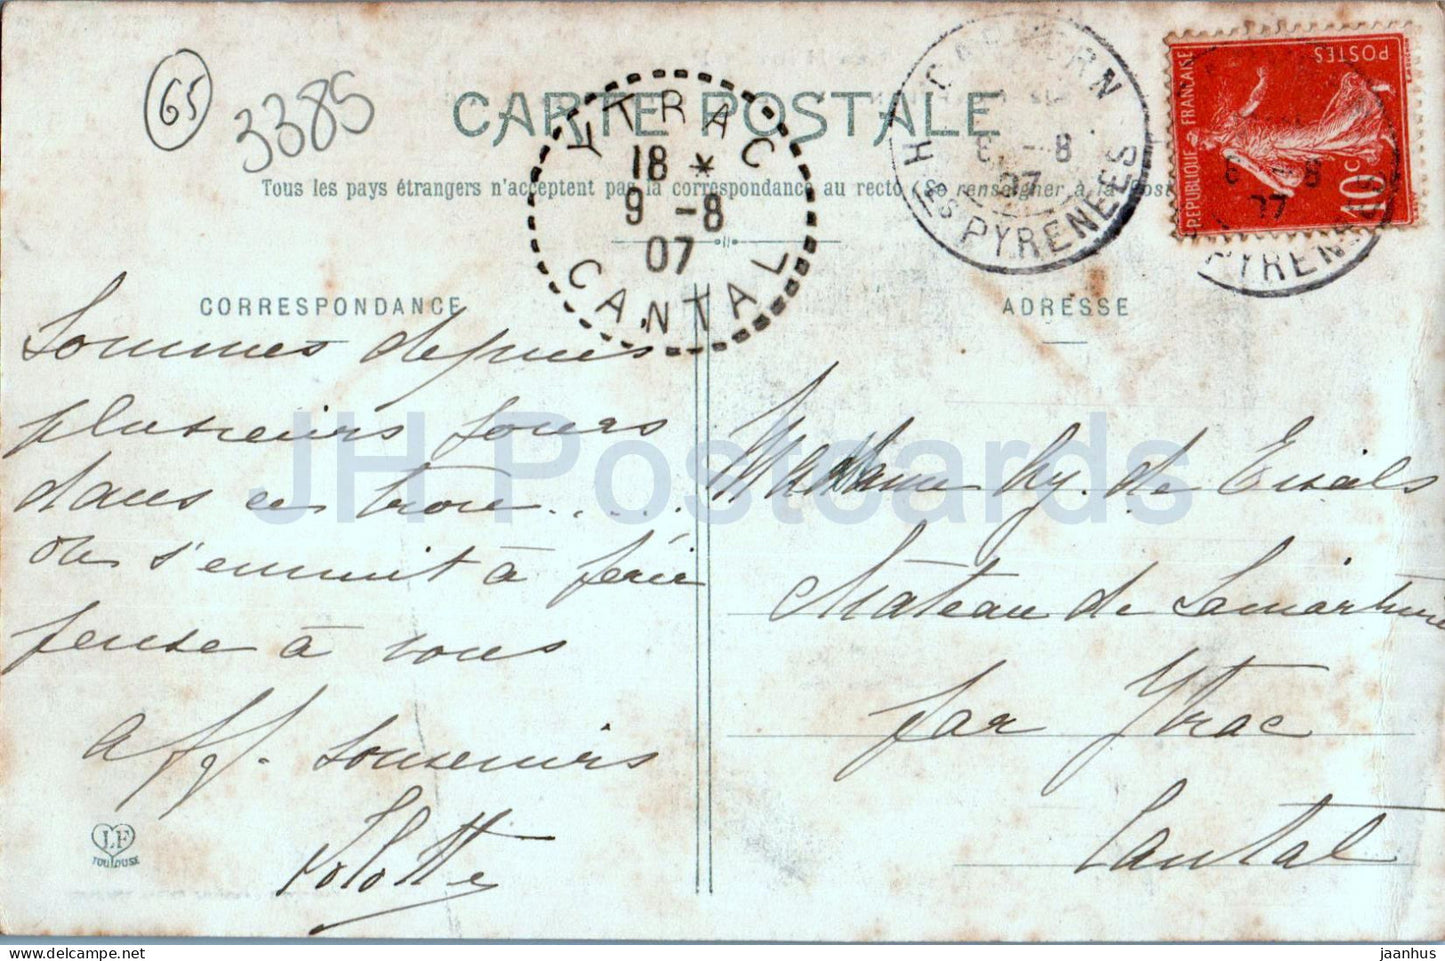 65
3385
CARTE POSTALE
Tous les pays étrangers n'acceptent pas la correspondance au recto (Se renseigner à la Poste
YTRAC
18 *
9 -8
07
CANTAL
CAPVERN
6 -8
07
Htes PYRENEES
POSTES
REPUBLIQUE FRANÇAISE
10c
6 -8
07
PYRENEES
CORRESPONDANCE
Sommes depuis
plusieurs jours
dans ce trou.....
on s'ennuit à périr
pense à vous
aff. souvenirs
Lolotte
LF
TOULOUSE
ADRESSE
Madame de
Château de Lamartinie
par Ytrac
Cantal
JH Postcards
jaanhus